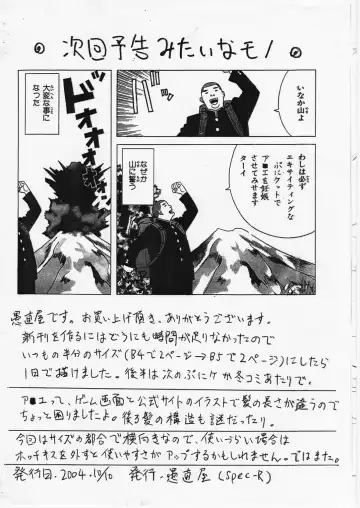 次回予告みたいなモノ
いなか山よ
わしは必ず
エキサイティングな
ぷにケットで
ア■エを妊娠
させてみせます
ターイ
なぜか
山に誓う
ドドオオオオン
大変な事に
なった
愚直屋です。お買い上げ頂き、ありがとうございます。
新刊を作るにはどうにも時間が足りなかったので
いつもの半分のサイズ(B4で2ページ→B5で2ページ)にしたら
1日で描けました。後半は次のぷにケか冬コミあたりで。
ア■エって、ゲーム画面と公式サイトのイラストで髪の長さが違うので
ちょっと困りましたよ。後ろ髪の構造も謎だったり。
今回はサイズの都合で横向きなので、使いづらい場合は
ホッチキスを外すと使いやすさがアップするかもしれません。ではまた。
発行日.2004.10/10 発行.愚直屋(Spec-R)